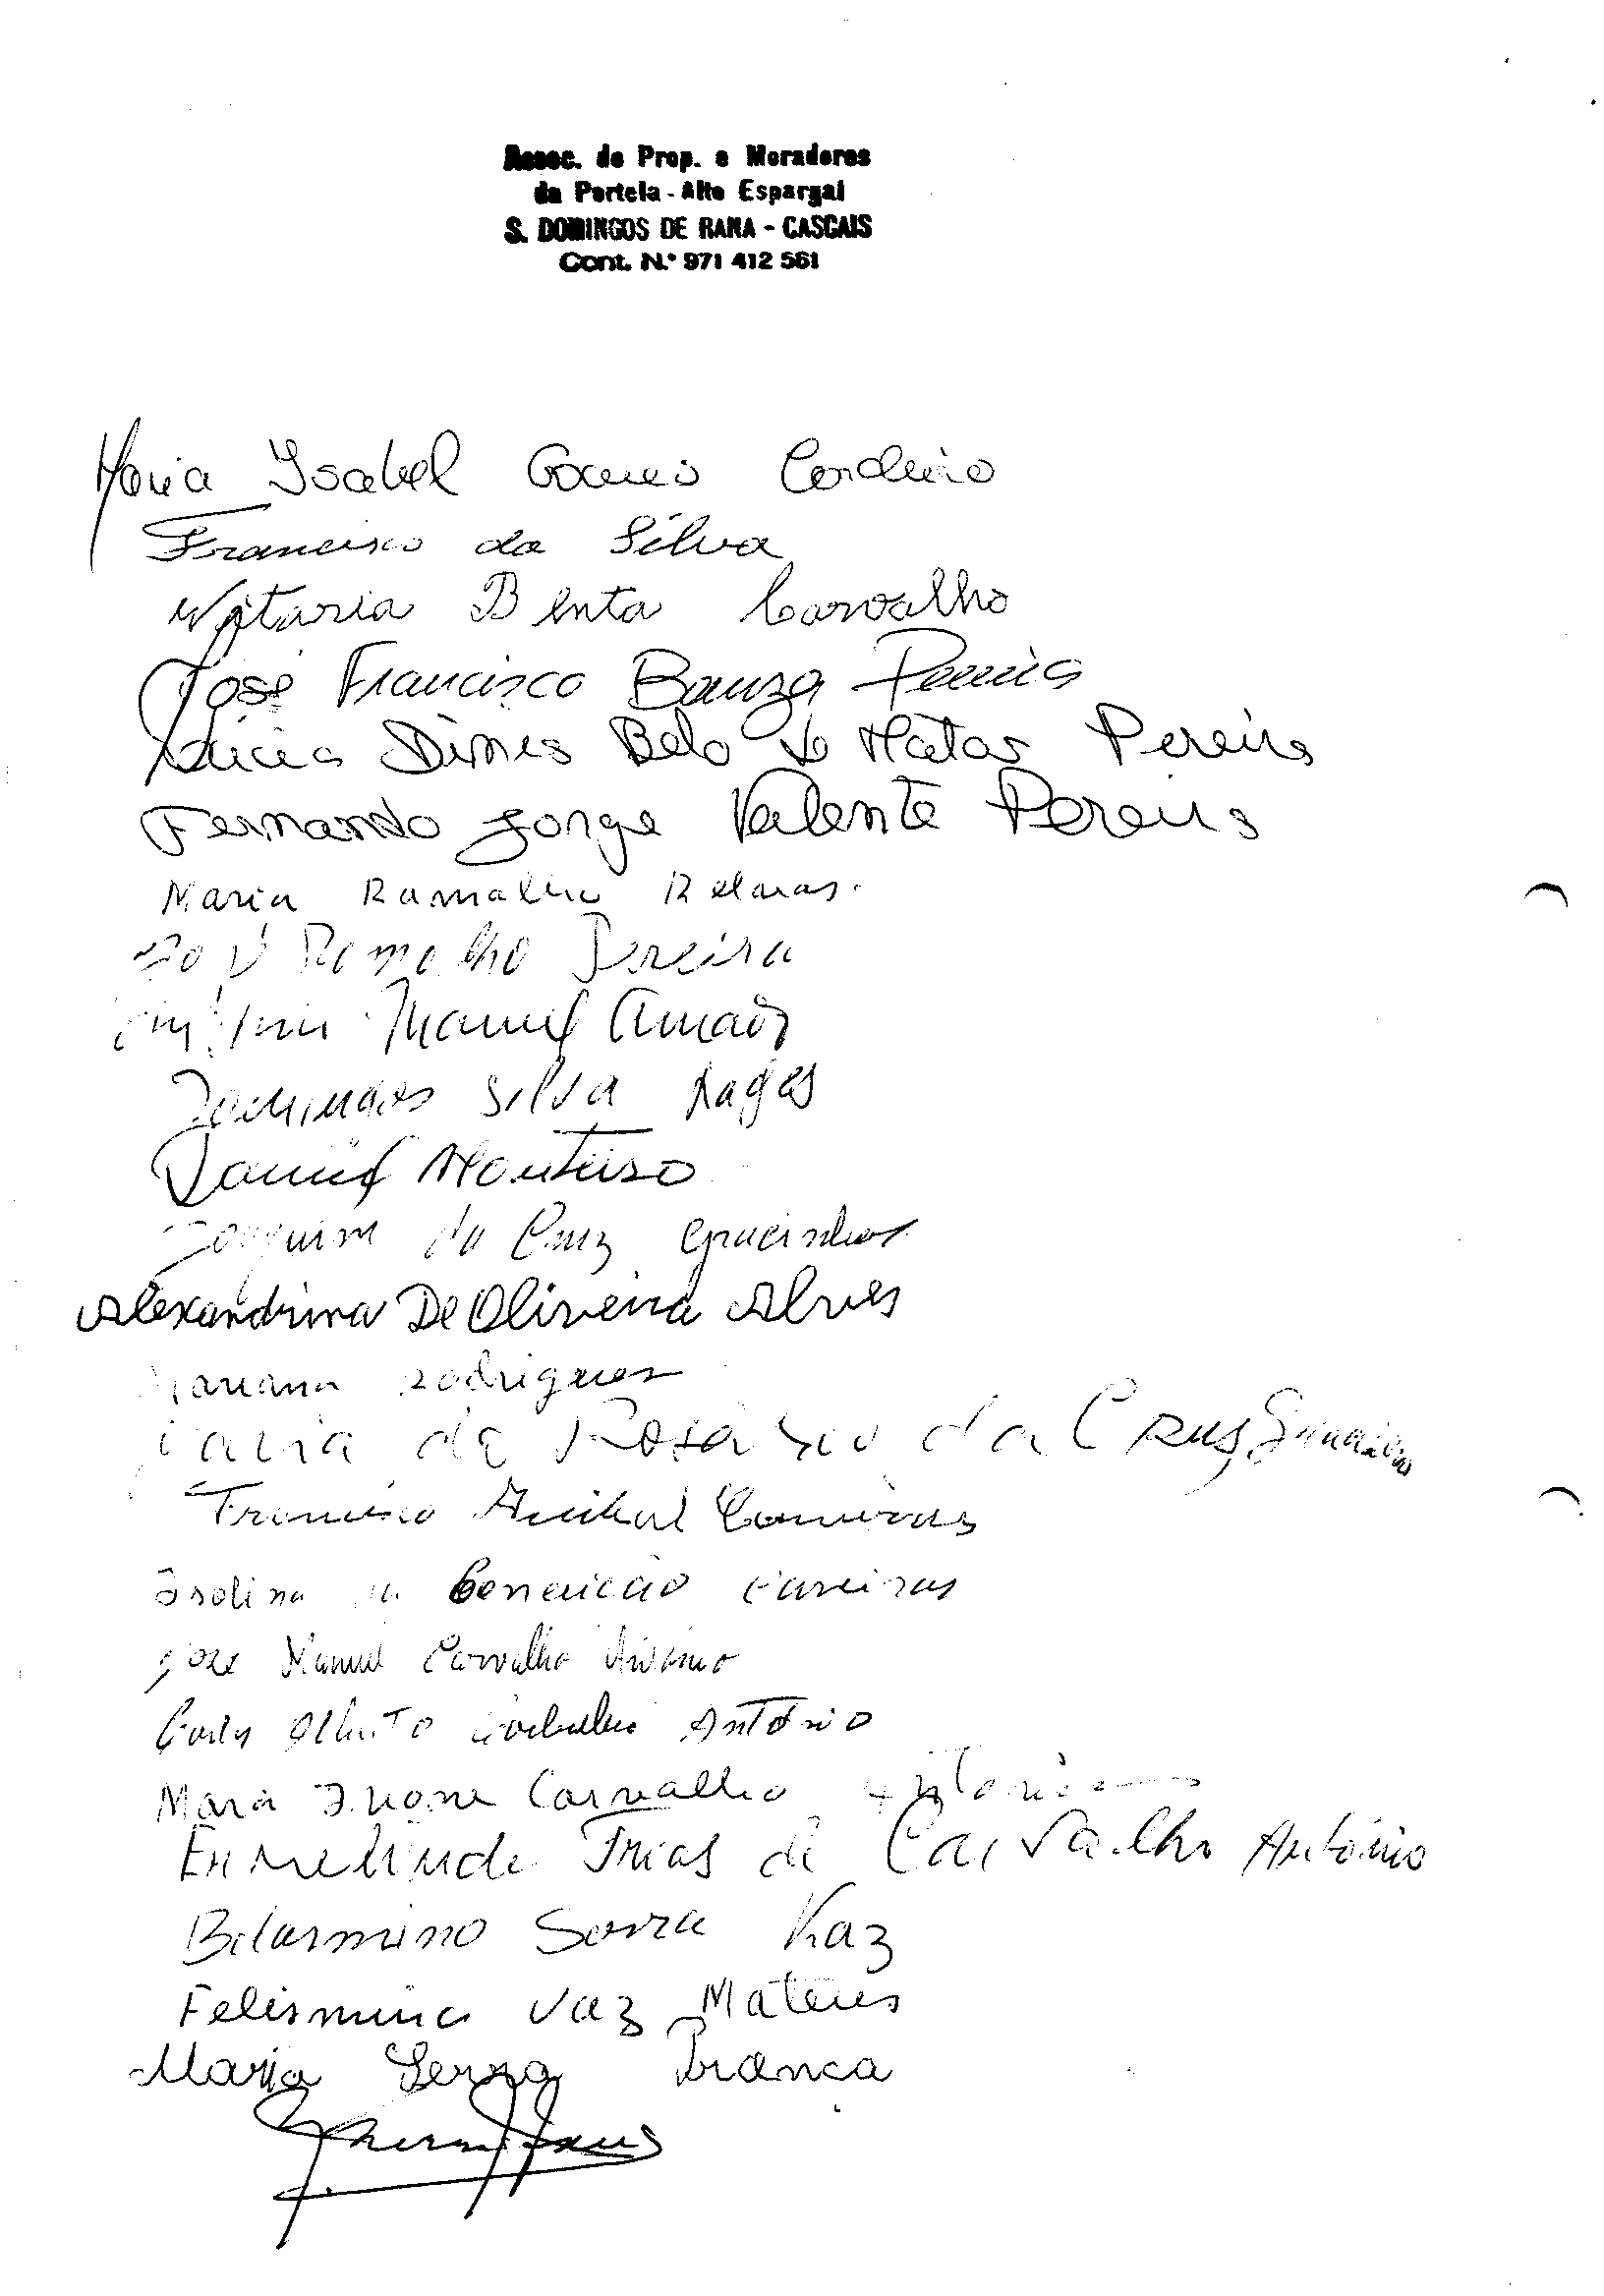 Assoc. de Prop. e Moradores
da Portela - Alto Espargal
S. DOMINGOS DE RANA - CASCAIS
Cont. N.º 971 412 561
Maria Isabel Gomes Cordeiro
Francisco da Silva
Vitaria Benta Carvalho
José Francisco Banza Pereira
Lúcia Belo de Matos Pereira
Fernando Jorge Valente Pereira
Maria Ramalho
Ramalho Pereira
Manuel Amaro
Domingos Silva Lages
Daniel Monteiro
Joaquim da Cruz
Alexandrina De Oliveira Alves
Mariana Rodrigues
Maria do Rosario da Crus
Francisco Anibal
Conceicão
José Manuel Carvalho António
António
Maria Ivone Carvalho Antonio
Ermelinda Frias de Carvalho António
Belarmino Serra Vaz
Felismina Vaz Mateus
Maria Serra Branca